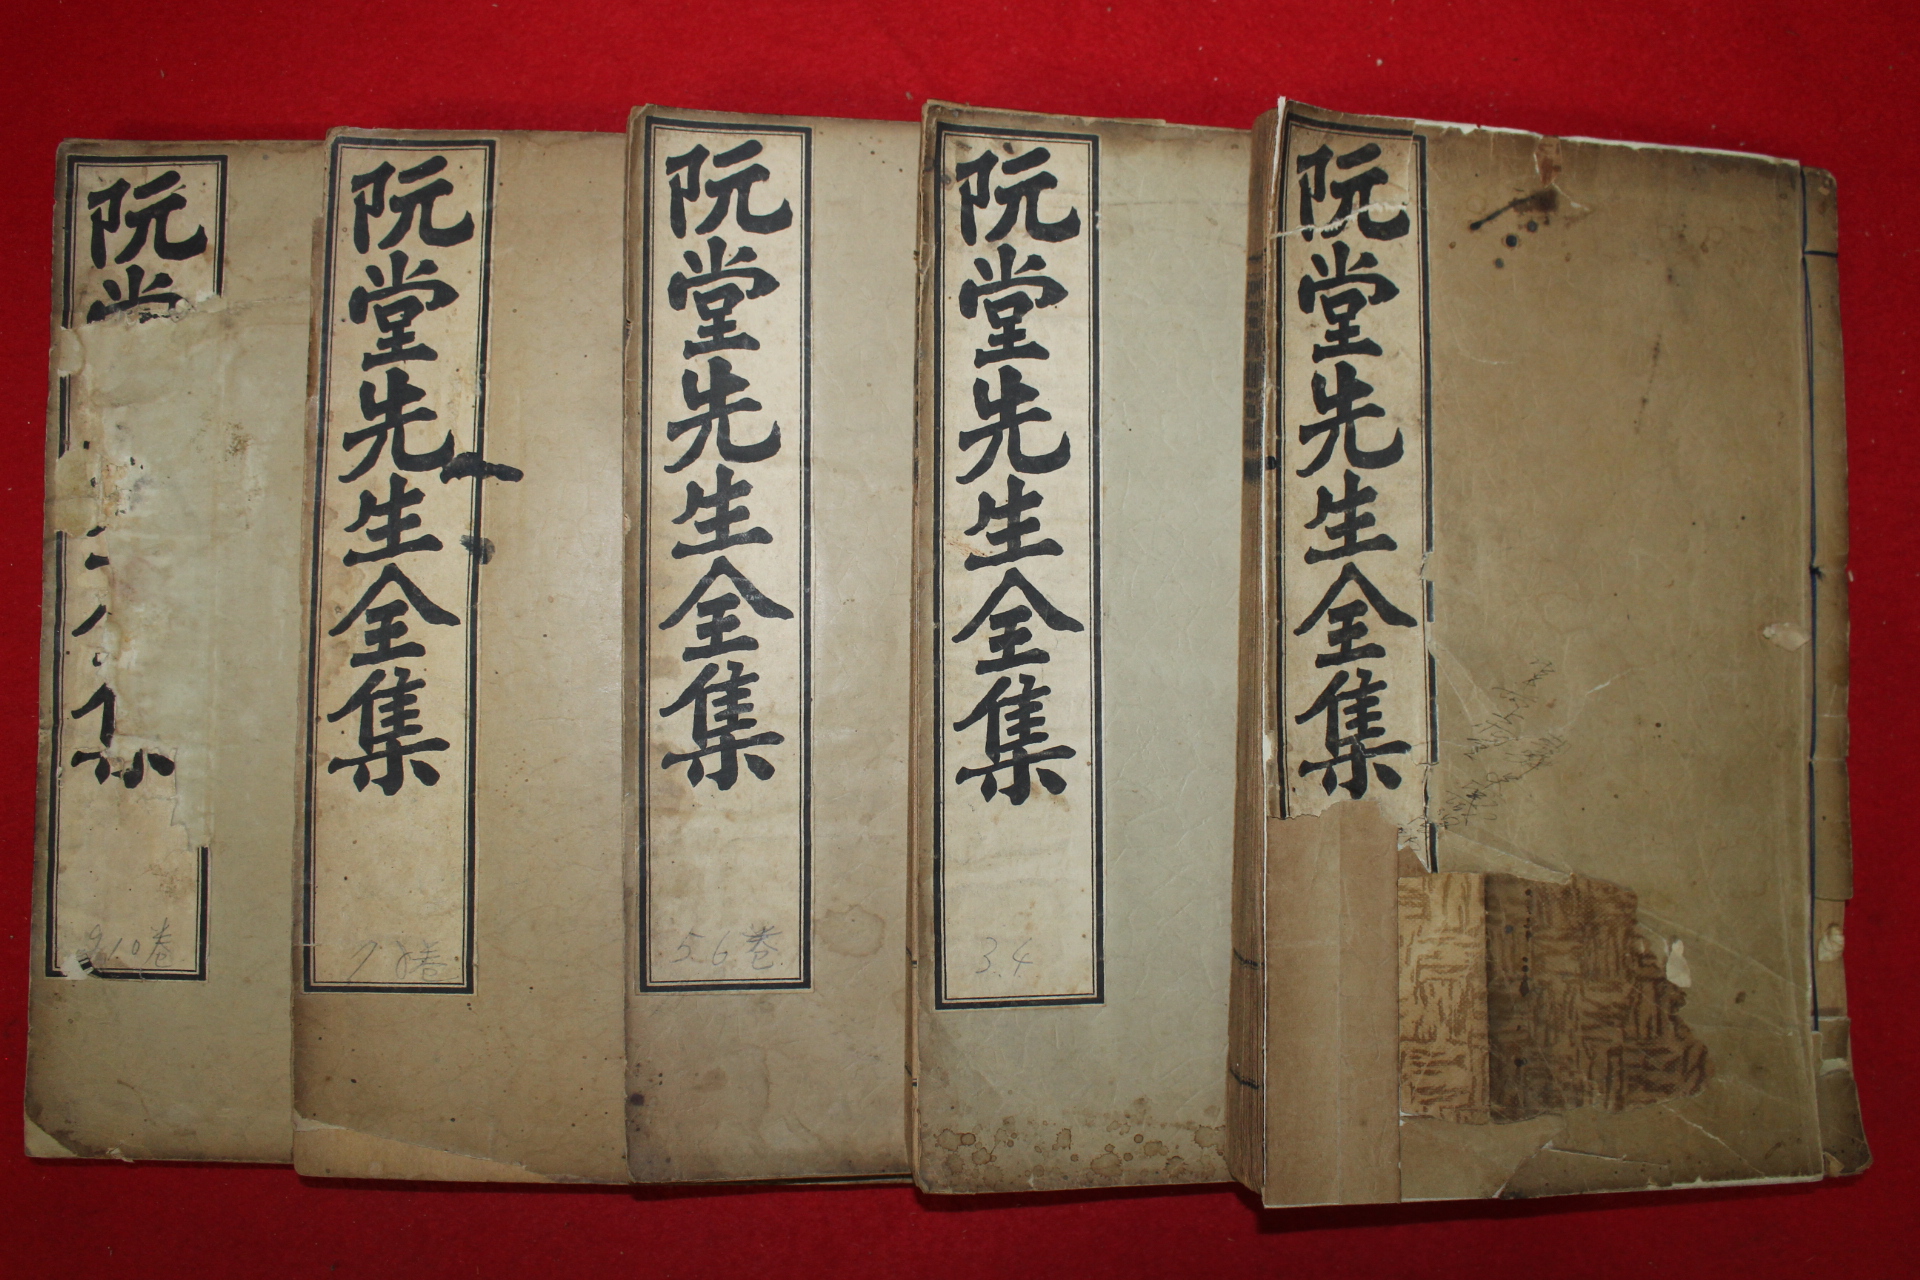 阮堂先生全集
阮堂先生全集
3.4
阮堂先生全集
5.6卷
阮堂先生全集
7 8卷
阮堂
集
9.10卷